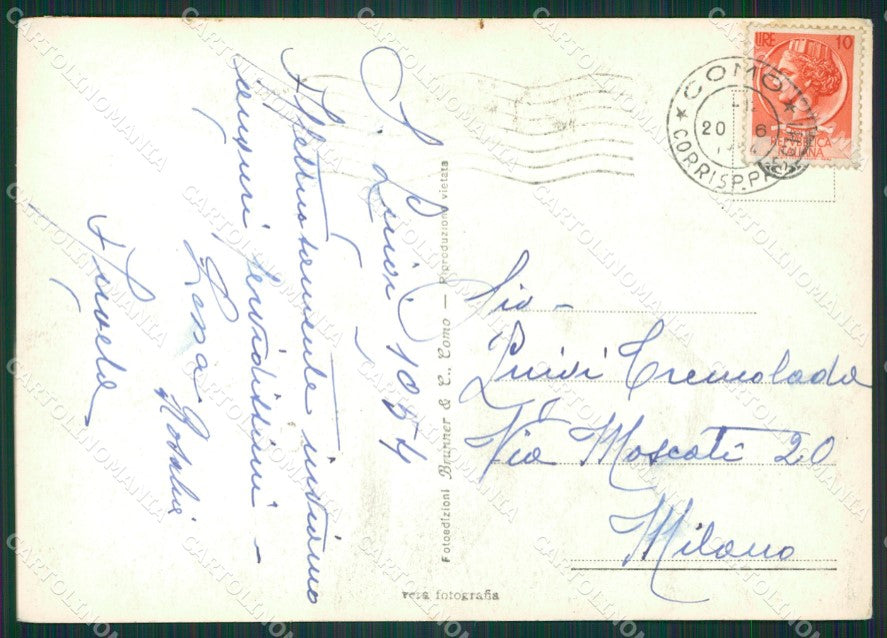 S. Luigi, 1954
Affettuosamente inviamo
auguri fervidissimi -
Rosalia
LIRE 10
REPUBBLICA
ITALIANA
COMO
20 6
CORRISP. P
Sig -
Luigi Cremolada
Via Moscati 20
Milano
Fotoedizioni Brunner & C., Como — Riproduzione vietata
vera fotografia
CARTOLINOMANIA